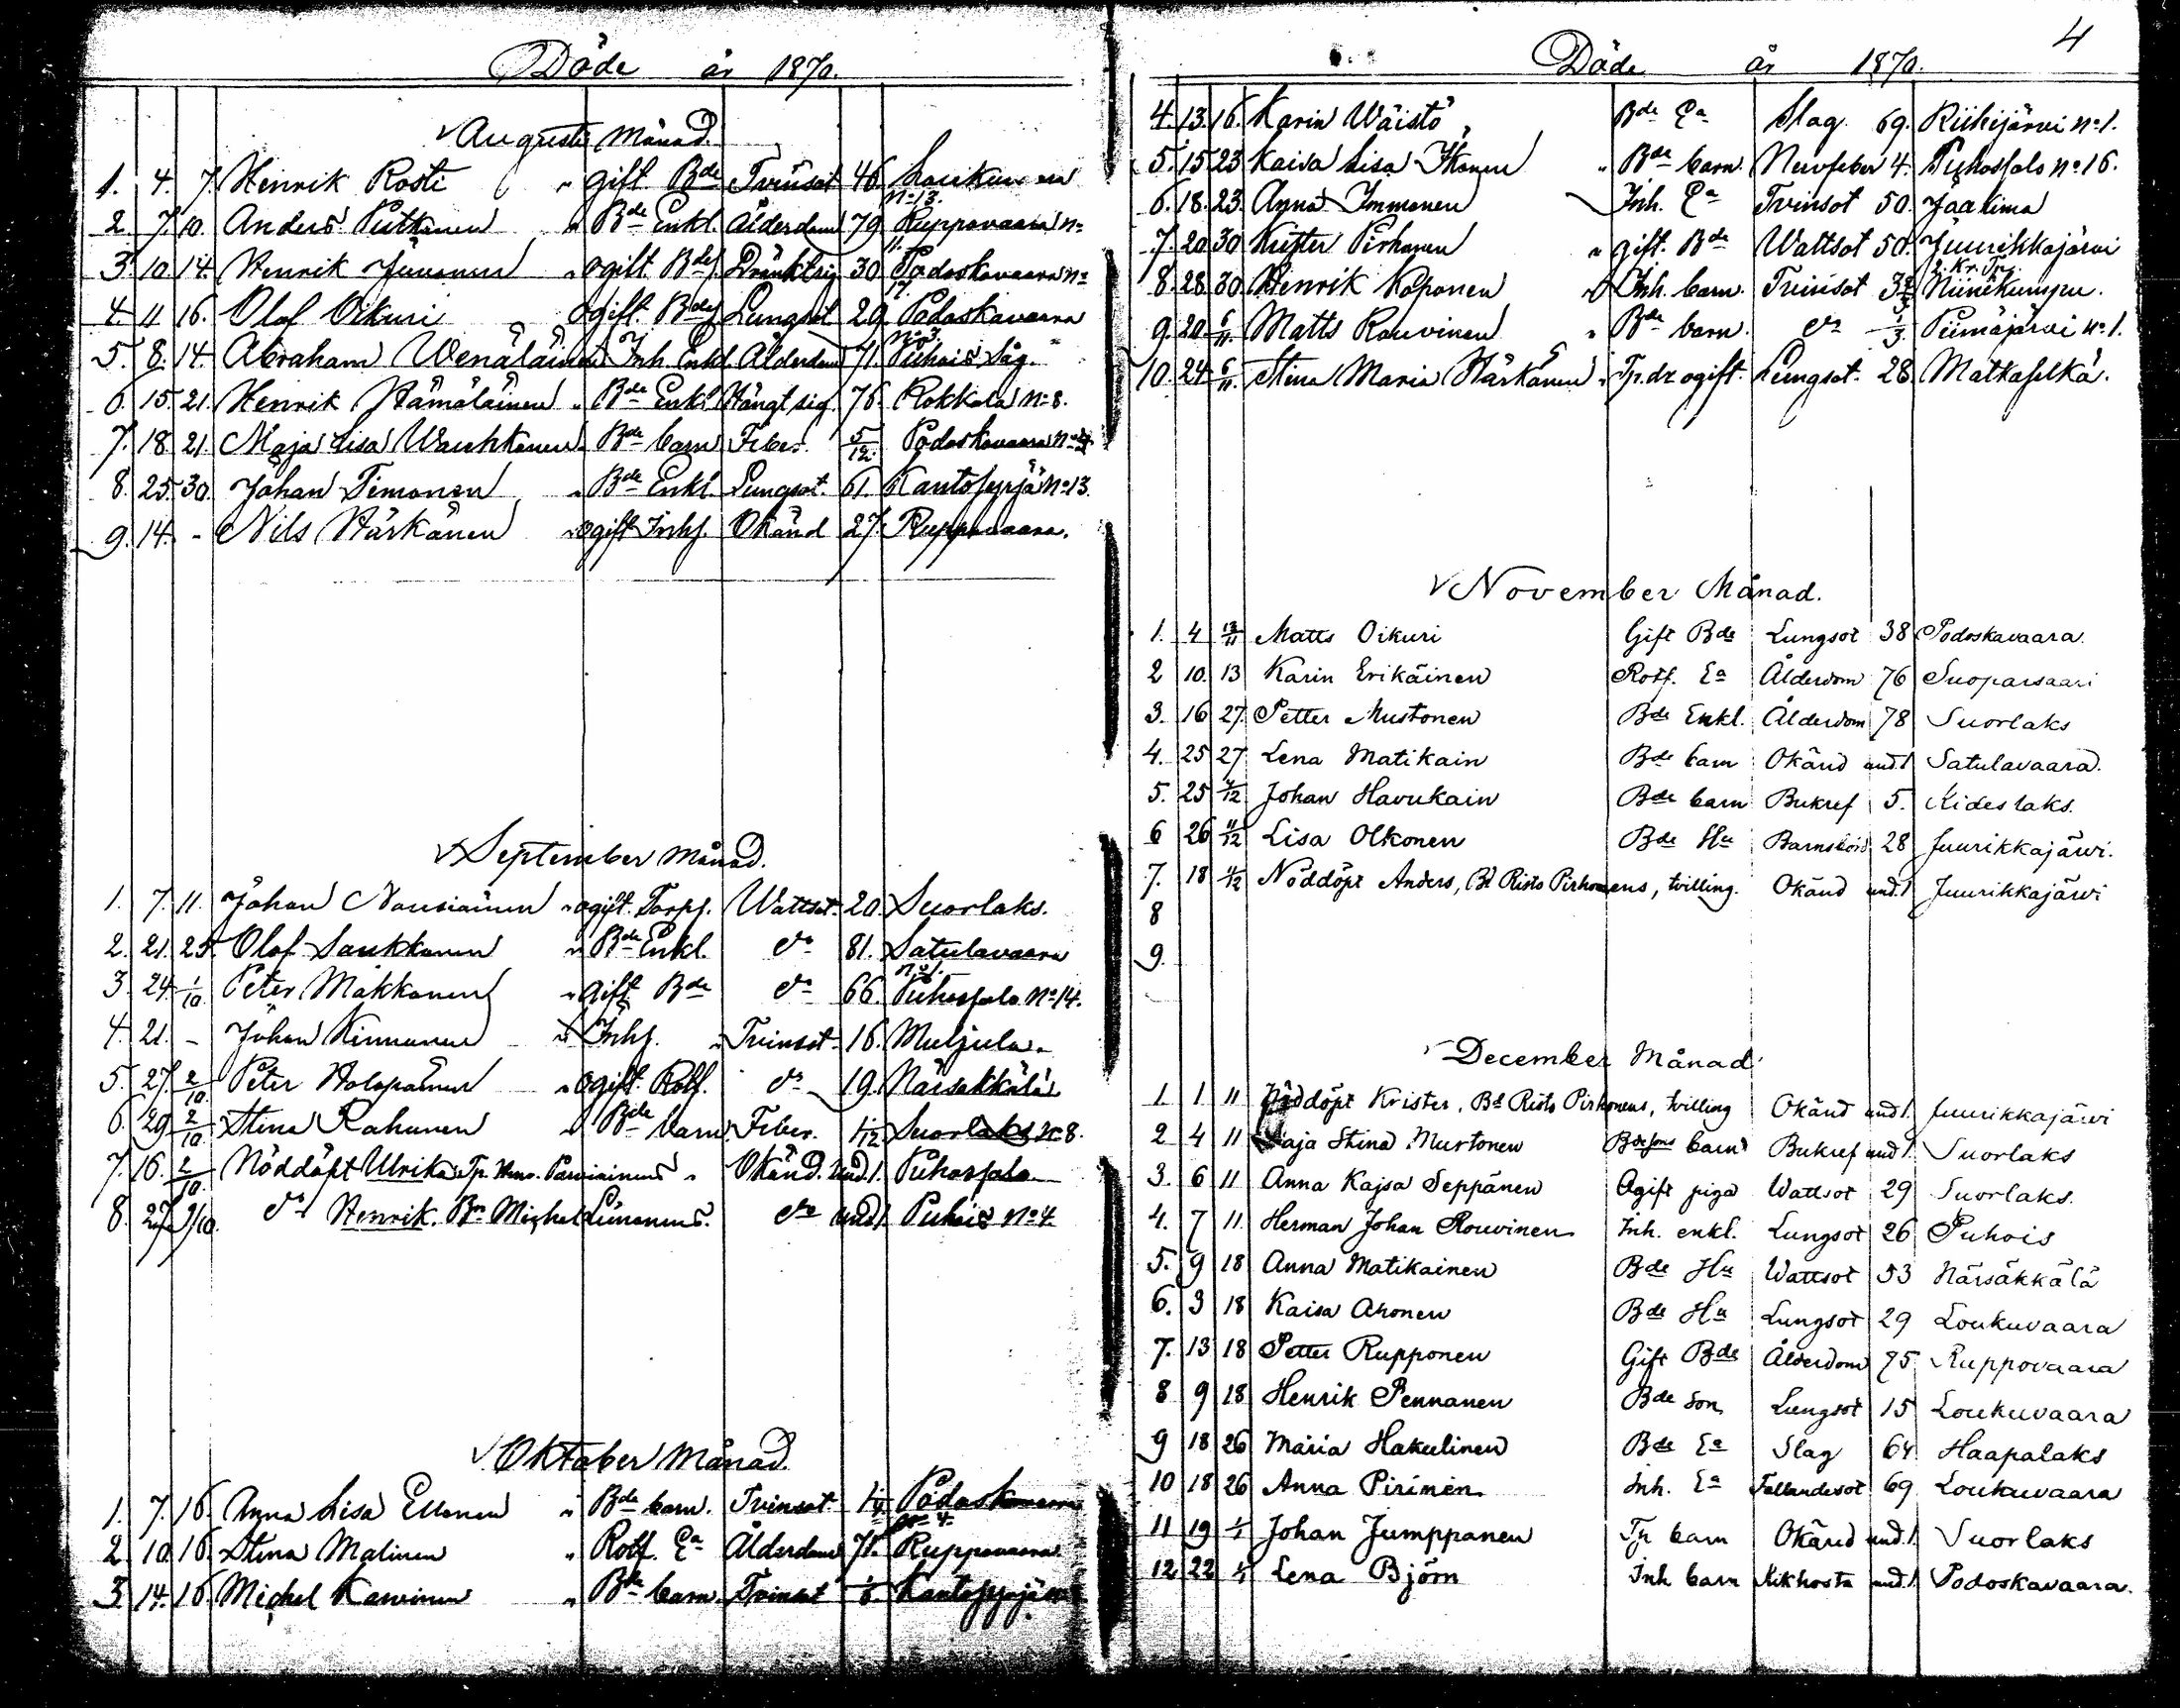 Döde år 1870.
Augusti Månad.
1. 4. 7. Henrik Rosti " gift Bde Tvinsot 46. Loukuvaara
No 13.
2. 7. 10. Anders Putkonen " Bde Enkl. Ålderdom 79 Ruppovaara No
11.
3. 10 14. Henrik Juvonen " ogift. Bdes. Dränkt sig 30 Podoskavaara No
17.
4. 11 16. Olof Oikuri ogift. Bdes Lungsot 29. Podoskavaara
No 3.
5. 8. 14. Abraham Wenäläinen Inh. Enkl. Ålderdom 71. Puhois Såg.
6. 15. 21. Henrik Hämäläinen " Bde Enkl. Hängt sig. 76. Rokkala No 8.
7. 18. 21. Maja Lisa Wauhkonen " Bde barn Feber. 5/12. Podoskavaara No
8. 25. 30. Johan Timonen " Bde Enkl. Lungsot. 61. Kantosyrjä No 13.
9. 14. - Nils Härkänen " ogift Inhs. Okänd 27. Ruppovaara.
September Månad.
1. 7. 11. Johan Nousiainen " ogift. Torps. Wattsot. 20. Suorlaks.
2. 21. 25. Olof Saukkonen " Bde Enkl. do 81. Satulavaara
No 1.
3. 24. 1/10. Peter Makkonen " gift Bde do 66. Puhossalo No 14.
4. 21. - Johan Kinnunen Inhs. Tvinsot. 16. Muljula.
5. 27. 2/10. Peter Holopainen " ogift. Rotf. do 19. Närsäkkälä
6. 29 2/10. Stina Rahunen Bde barn Feber. 1/12 Suorlaks No 8.
7. 16. 2/10. Nöddöpt Ulrika Tp. Parviainens " Okänd. und. 1. Puhossalo
8. 27 9/10. do Henrik. Bn Michel Simonens. do und. 1 Puhois No 4.
Oktober Månad.
1. 7. 16. Anna Lisa Ellonen " Bde barn. Tvinsot. Podoskavaara
No 4.
2. 10. 16. Stina Malinen " Rotf. Ea Ålderdom 71. Ruppovaara
3. 14. 16. Michel Karvinen " Bde barn. Tvinsot Kantosyrjä
4
Döde år 1870.
4. 13. 16. Karin Wäistö Bde Ea Slag. 69. Riihijärvi No 1.
5. 15 23 Kaisa Lisa Ikonen " Bde barn. Nervfeber 4. Puhossalo No 16.
6. 18. 23. Anna Immonen Inh. Ea Tvinsot 50. Jaalima
7. 20 30 Krister Pirhonen " gift. Bde Wattsot 50. Juurikkajärvi
8. 28. 30. Henrik Koponen Inh. barn. Tvinsot Niinikumpu.
9. 20. 6/11. Matts Rouvinen " Bde barn. do Piimäjärvi No 1.
10. 24 6/11. Stina Maria Härkänen " Tp. dr ogift. Lungsot. 28 Matkaselkä.
November Månad.
1. 4 13/11 Matts Oikuri Gift Bde Lungsot 38 Podoskavaara.
2 10. 13 Karin Erikäinen Rotf. Ea Ålderdom 76 Suoparsaari
3. 16 27. Petter Mustonen Bde Enkl. Ålderdom 78 Suorlaks
4. 25 27 Lena Matikain Bde barn Okänd und. 1 Satulavaara.
5. 25 4/12 Johan Havukain Bde barn Bukref 5. Kideslaks.
6 26 11/12 Lisa Olkonen Bde Hu Barnsbörd 28 Juurikkajärvi.
7. 18 4/12 Nöddöpt Anders, Bd Risto Pirhonens, tvilling. Okänd und. 1 Juurikkajärvi
8
9.
December Månad
1. 1 11 Nöddöpt Krister, Bd Risto Pirhonens, tvilling Okänd und 1. Juurikkajärvi
2 4 11 Maja Stina Murtonen Bdesons barn Bukref und 1. Suorlaks
3. 6 11 Anna Kajsa Seppänen Ogift piga Wattsot 29 Suorlaks.
4. 7 11. Herman Johan Rouvinen Inh. enkl. Lungsot 26 Puhois
5. 9 18 Anna Matikainen Bde Hu Wattsot 53 Närsäkkälä
6. 3 18 Kaisa Ahonen Bde Hu Lungsot 29 Loukuvaara
7. 13 18 Petter Rupponen Gift Bde Ålderdom 75 Ruppovaara
8 9 18 Henrik Pennanen Bde son Lungsot 15 Loukuvaara
9 18 26 Maria Hakulinen Bde Ea Slag 64 Haapalaks
10 18 26 Anna Pirinen Inh. Ea Fallandesot 69 Loukuvaara
11 19 1/1 Johan Jumppanen Tp barn Okänd und. 1. Suorlaks
12 22 1/1 Lena Björn Inh barn Kikhosta und. 1. Podoskavaara.